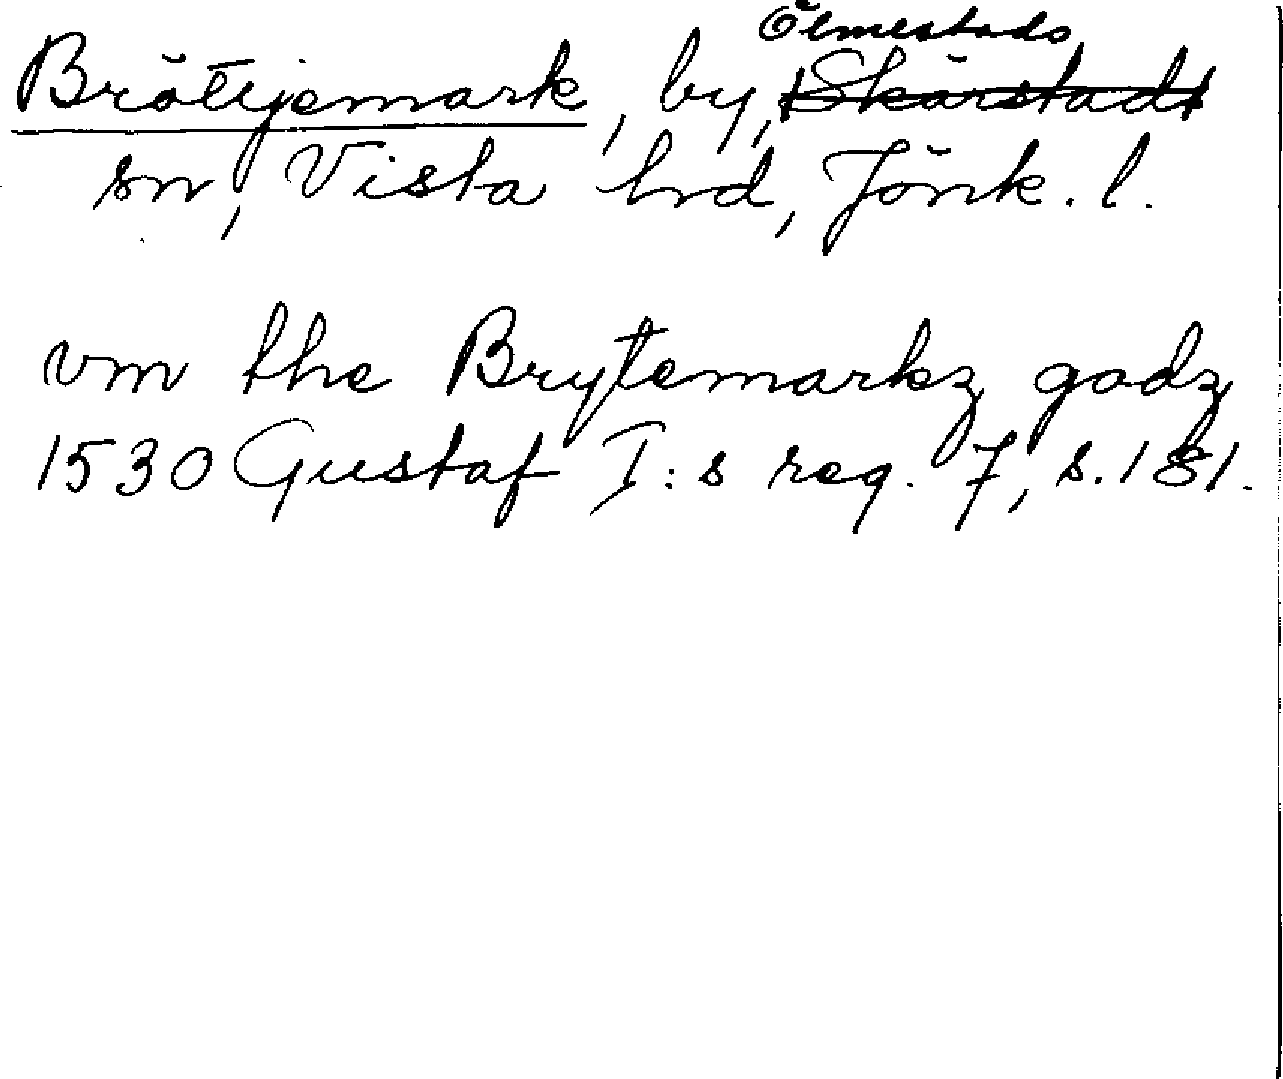 Ölmestads
Brötjemark, by, Skärstads
sn, Vista hrd, Jönk. l.
vm the Brytemarkz godz
1530 Gustaf I:s reg. 7, s. 181.